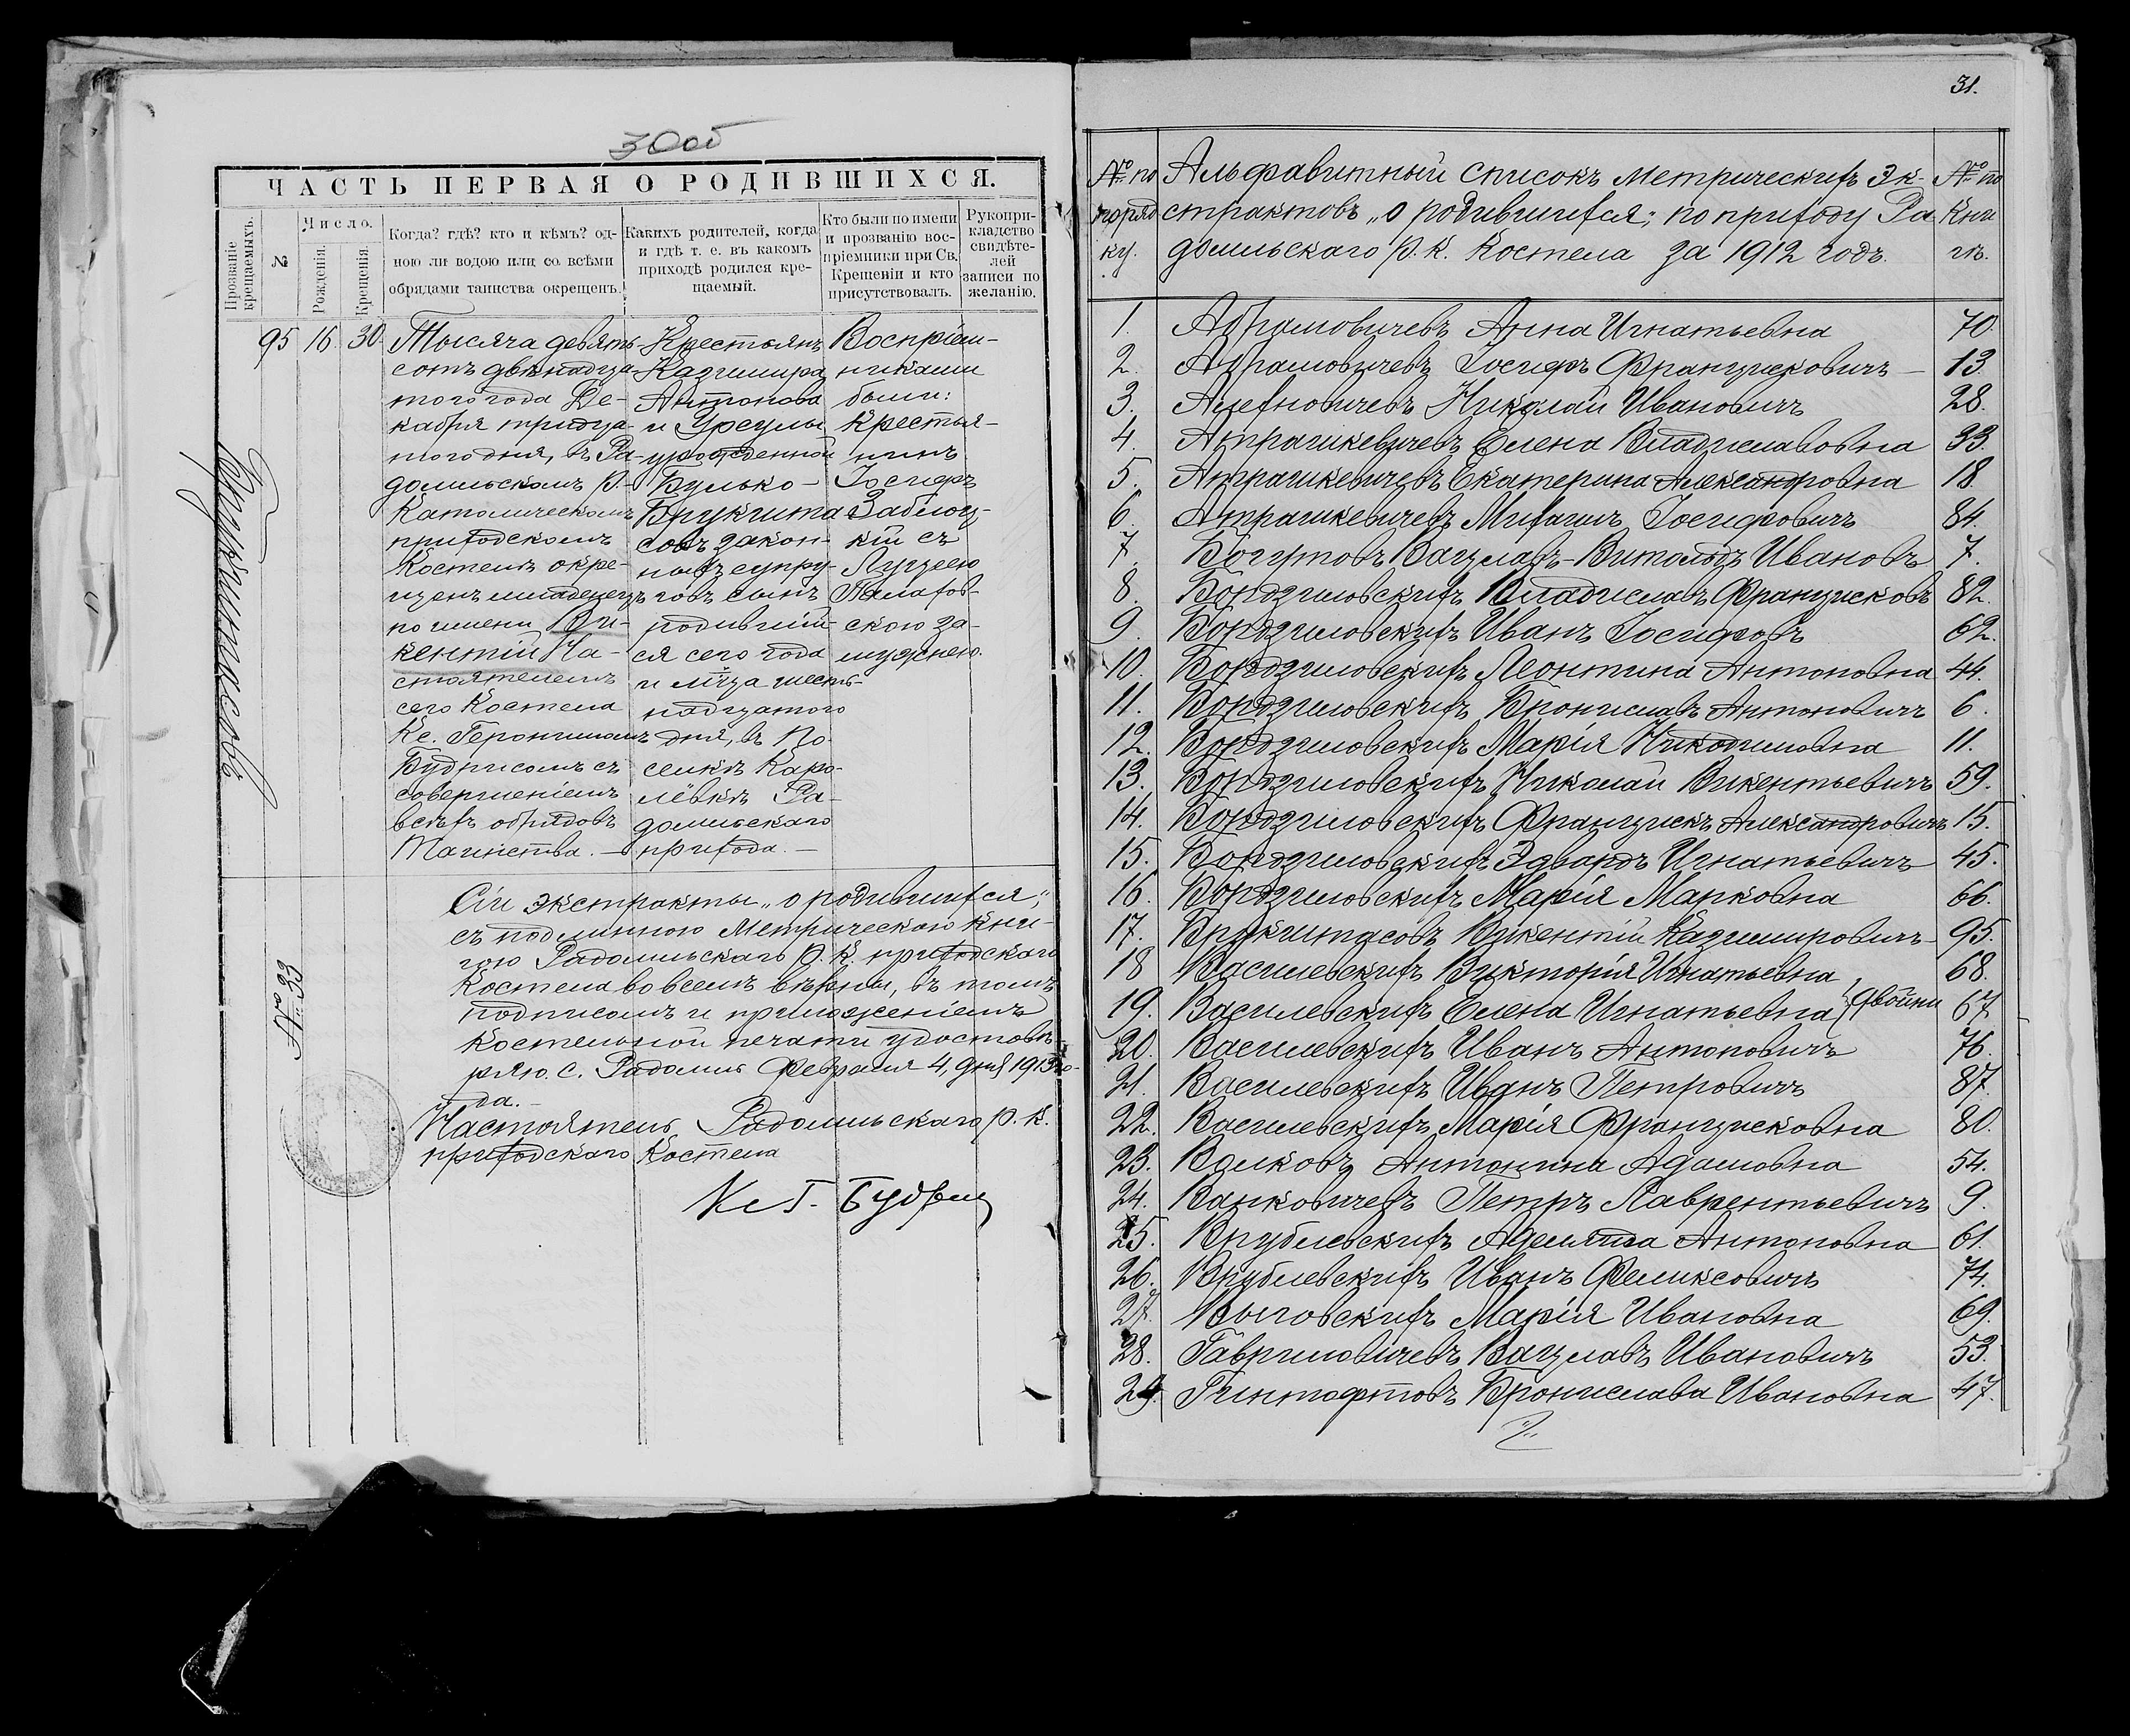 30об
ЧАСТЬ ПЕРВАЯ О РОДИВШИХСЯ.
Прозваніе крещаемыхъ.
№
Число.
Рожденія.
Крещенія.
Когда? гдѣ? кто и кѣмъ? од-
ною ли водою или со всѣми
обрядами таинства окрещенъ.
Какихъ родителей, когда
и гдѣ т. е. въ какомъ
приходѣ родился кре-
щаемый.
Кто были по имени
и прозванію вос-
пріемники при Св.
Крещеніи и кто
присутствовалъ.
Рукопри-
кладство
свидѣте-
лей
записи по
желанію.
Брукштасовъ
95 16 30
Тысяча девять-
сотъ двѣнадца-
того года Де-
кабря тридца-
того дня, въ Ра-
домильскомъ Р.-
Католическомъ
приходскомъ
Костелѣ окре-
щенъ младенецъ
по имени Ви-
кентій На-
стоятелемъ
сего Костела
Кс. Геронимомъ
Будрисомъ съ
совершеніемъ
всѣхъ обрядовъ
Таинства. —
Крестьянъ
Казимира
Антонова
и Урсулы
урожденной
Булько-
Брукшта-
совъ закон-
ныхъ супру-
говъ сынъ
родившій-
ся сего года
и м-ца шест-
надцатого
дня, въ По-
селкѣ Каро-
лёвкѣ Ра-
домильскаго
прихода. —
Воспріем-
никами
были:
Крестья-
нинъ
Іосифъ
Заблоц-
кій съ
Луцею
Палахов-
скою за-
мужнею.
Сіи экстракты „о родившихся",
съ подлинною Метрическою Кни-
гою Радомильскаго Р. К. приходскаго
Костела во всемъ вѣрны, въ томъ
подписомъ и приложеніемъ
Костельной печати удостовѣ-
ряю. С. Радомль Февраля 4, дня 1913 го-
да.
№ 33
Настоятель Радомильскаго Р. К.
приходскаго Костела
Кс Г. Будрис
31.
№ по
поряд
ку.
Альфавитный списокъ Метрическихъ Эк-
страктовъ „о родившихся", по приходу Ра
домильскаго Р. К. Костела за 1912 годъ.
№ по
Кни
гѣ.
1. Абрамовичевъ Анна Игнатьевна 70.
2. Абрамовичевъ Іосифъ Францисковичъ 13.
3. Алехновичевъ Николай Ивановичъ 28.
4. Атрашкевичевъ Елена Владиславовна 33.
5. Атрашкевичевъ Екатерина Александровна 18.
6. Атрашкевичевъ Михаилъ Іосифовичъ 84.
7. Богутовъ Вацлавъ-Витольдъ Ивановъ 7.
8. Бордзиловскихъ Владиславъ Францисковъ 82.
9. Бордзиловскихъ Иванъ Іосифовъ 62.
10. Бордзиловскихъ Леонтина Антоновна 44.
11. Бордзиловскихъ Брониславъ Антоновичъ 6.
12. Бордзиловскихъ Марія Никодимовна 11.
13. Бордзиловскихъ Николай Викентьевичъ 59.
14. Бордзиловскихъ Францискъ Александровичъ 15.
15. Бордзиловскихъ Эдвардъ Игнатьевичъ 45.
16. Бордзиловскихъ Марія Марковна 66.
17. Брукштасовъ Викентій Казимировичъ 95.
18 Василевскихъ Викторія Игнатьевна 68.
19. Василевскихъ Елена Игнатьевна } двойни 67
20. Василевскихъ Иванъ Антоновичъ 76.
21. Василевскихъ Иванъ Петровичъ 87.
22. Василевскихъ Марія Францисковна 80.
23. Волковъ Антонина Адамовна 54.
24. Ванковичевъ Петръ Лаврентьевичъ 9.
25. Врублевскихъ Аделя Антоновна 61.
26. Врублевскихъ Иванъ Феликсовичъ 74.
27. Выговскихъ Марія Ивановна 69.
28. Гавриловичевъ Вацлавъ Ивановичъ 53.
29. Гинтофтовъ Бронислава Ивановна 47.